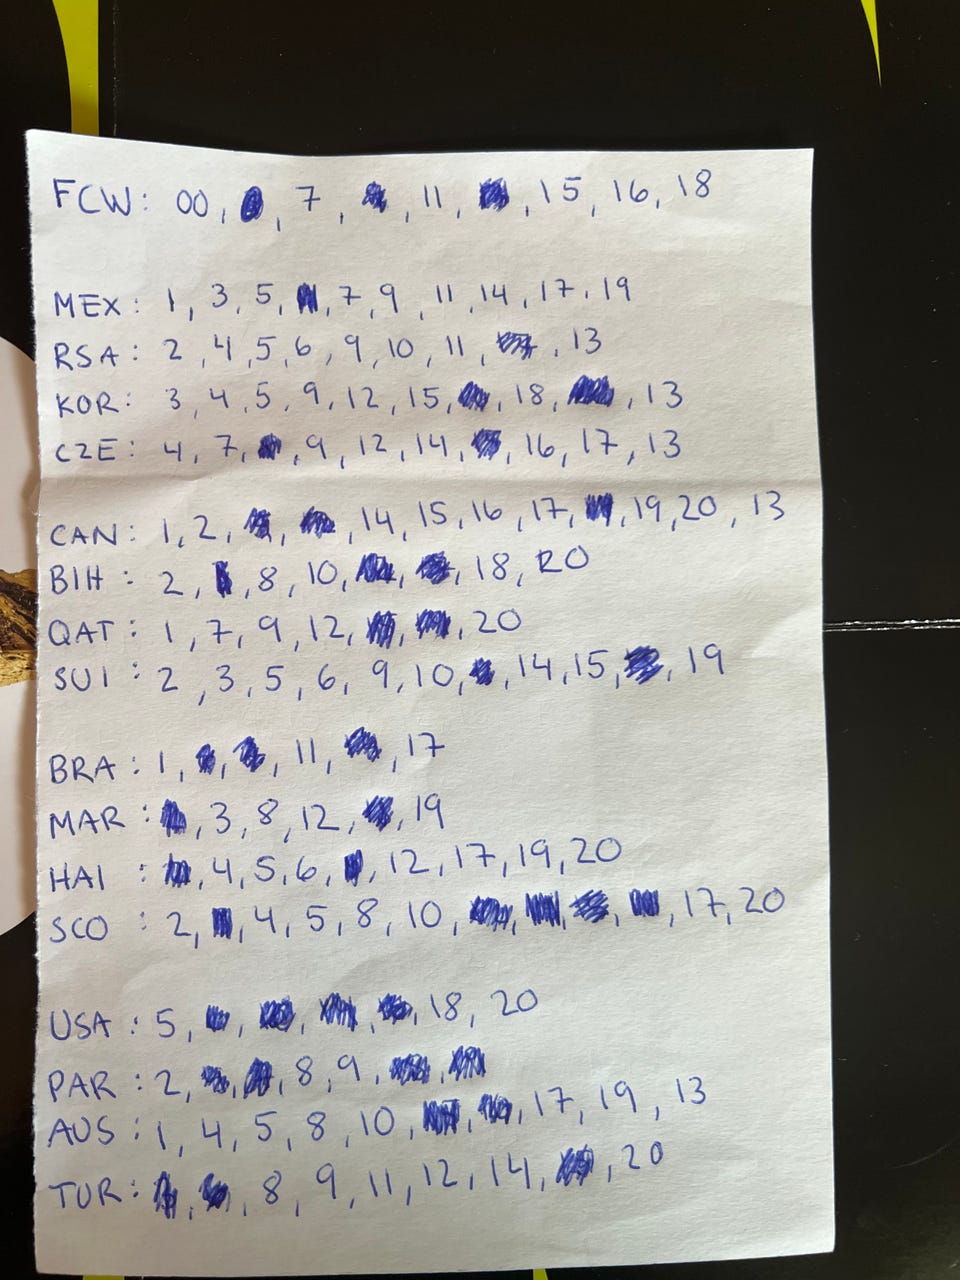 FCW: 00, , 7, , 11, , 15, 16, 18
MEX: 1, 3, 5, , 7, 9, 11, 14, 17, 19
RSA: 2, 4, 5, 6, 9, 10, 11, , 13
KOR: 3, 4, 5, 9, 12, 15, , 18, , 13
CZE: 4, 7, , 9, 12, 14, , 16, 17, 13
CAN: 1, 2, , , 14, 15, 16, 17, , 19, 20, 13
BIH: 2, , 8, 10, , , 18, 20
QAT: 1, 7, 9, 12, , , 20
SUI: 2, 3, 5, 6, 9, 10, , 14, 15, , 19
BRA: 1, , , 11, , 17
MAR: , 3, 8, 12, , 19
HAI: , 4, 5, 6, , 12, 17, 19, 20
SCO: 2, , 4, 5, 8, 10, , , , , 17, 20
USA: 5, , , , , 18, 20
PAR: 2, , , 8, 9, ,
AUS: 1, 4, 5, 8, 10, , , 17, 19, 13
TUR: , , 8, 9, 11, 12, 14, , 20